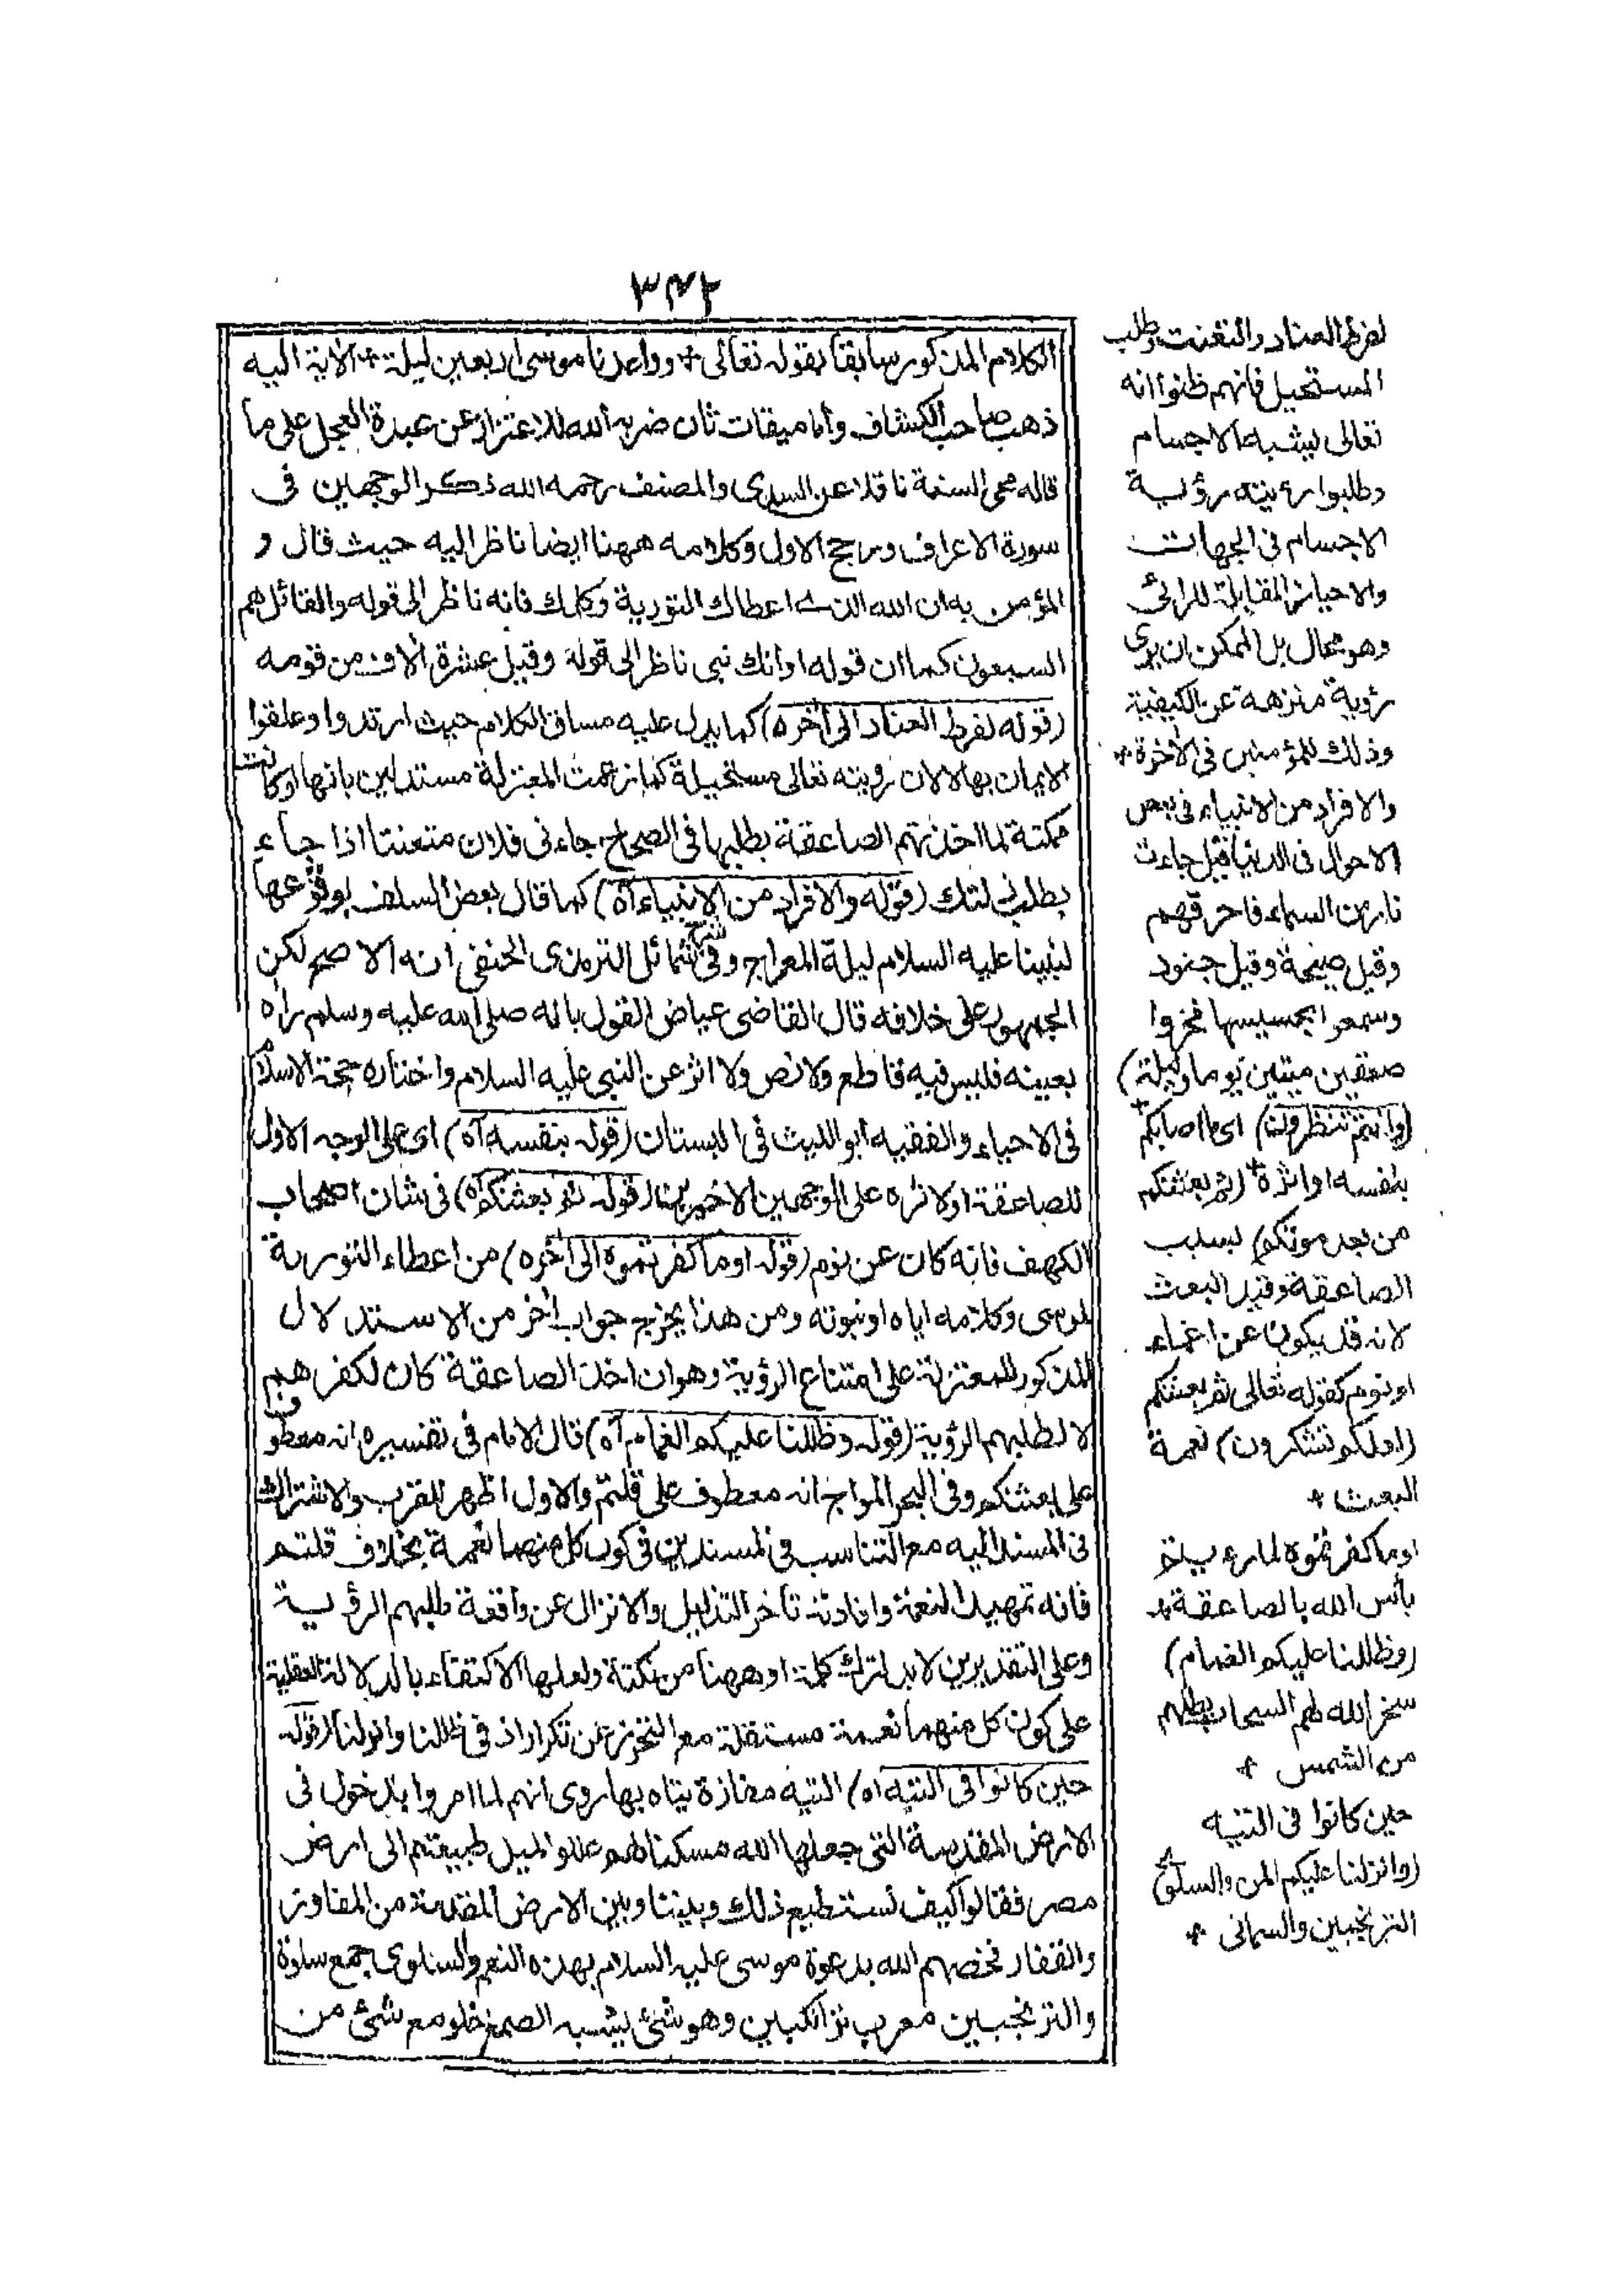 ٣٤٢
الكلام المذكور سابقا بقوله تعالى * وواعدنا موسى اربعين ليلة * الآية اليه
ذهب صاحب الكشاف واما ميقات ثان ضربه الله للاعتزار عن عبدة العجل على ما
قاله محى السنة ناقلا عن السدى والمصنف رحمه الله ذكر الوجهين فى
سورة الاعراف ورجح الاول وكلامه ههنا ايضا ناظر اليه حيث قال و
المؤمن به ان الله الذى اعطاك التورية وكلمك فانه ناظر الى قوله والقائل هم
السبعون كما ان قوله او انك نبى ناظر الى قوله وقيل عشرة آلاف من قومه
(قوله لفرط العناد الى آخره) كما يدل عليه مساق الكلام حيث ارتدوا وعلقوا
الايمان بها لا لان رويته تعالى مستحيلة كما زعمت المعتزلة مستدلين بانها لو كانت
ممكنة لما اخذتهم الصاعقة بطلبها فى الصحاح جاءنى فلان متعنتا اذا جاء
يطلب زلتك (قوله والافراد من الانبياء آه) كما قال بعض السلف بوقوعها
لنبينا عليه السلام ليلة المعراج وفى شرح شمائل الترمذى الحنفى انه الاصح لكن
الجمهور على خلافه قال القاضى عياض القول بانه صلى الله عليه وسلم رآه
بعينه فليس فيه قاطع ولا نص ولا اثر عن النبى عليه السلام واختاره حجة الاسلام
فى الاحياء والفقيه ابو الليث فى البستان (قوله بنفسه آه) اى على الوجه الاول
للصاعقة او لاثره على الوجهين الاخيرين (قوله ثم بعثنكم آه) فى شان اصحاب
الكهف فانه كان عن نوم (قوله او ما كفرتموه الى آخره) من اعطاء التورية
لموسى وكلامه اياه او نبوته ومن هذا يخرج جواب آخر من الاستدلال
المذكور للمعتزلة على امتناع الرؤية وهو ان اخذ الصاعقة كان لكفرهم
لا لطلبهم الرؤية (قوله وظللنا عليكم الغمام آه) قال الامام فى تفسيره انه معطوف
على بعثنكم وفى البحر المواج انه معطوف على قلتم والاول اظهر للقرب والاشتراك
فى المسند اليه مع التناسب فى المسندين فى كون كل منهما نعمة بخلاف قلتم
فانه تمهيد النعمة وافادته تأخر التذليل والانزال عن واقعة طلبهم الرؤية
وعلى التقديرين لابد لترك كلمة اذ ههنا من نكتة ولعلها الاكتفاء بالدلالة العقلية
على كون كل منهما نعمة مستقلة مع التحرز عن تكرار اذ فى ظللنا وانزلنا (قوله
حين كانوا فى التيه آه) التيه مفازة يتاه بها روى انهم لما امروا بدخول فى
الارض المقدسة التى جعلها الله مسكنا لهم عللوا لميل طبيعتهم الى ارض
مصر فقالوا كيف نستطيع ذلك وبيننا وبين الارض المقدسة من المفاوز
والقفار فخصهم الله بدعوة موسى عليه السلام بهذه النعم والسلوى جمع سلوة
والترنجبين معرب ترانكبين وهو شئ يشبه الصمغ حلو مع شئ من
لفرط العناد والتعنت وطلب
المستحيل فانهم ظنوا انه
تعالى يشبه الاجسام
وطلبوا رءيته رؤية
الاجسام فى الجهات
والاحياز المقابلة للرائى
وهو محال بل الممكن ان يرى
رؤية منزهة عن الكيفية
وذلك للمؤمنين فى الآخرة *
والافراد من الانبياء فى بعض
الاحوال فى الدنيا قيل جاءت
نار من السماء فاحرقتهم
وقيل صيحة وقيل جنود
وسمعوا بحسيسها فخروا
صعقين ميتين يوما وليلة)
(وانتم تنظرون) اى ما اصابكم
بنفسه او اثره * (ثم بعثنكم
من بعد موتكم) بسبب
الصاعقة وقيد البعث
لانه قد يكون عن اغماء
او نوم كقوله تعالى ثم بعثنكم
(لعلكم تشكرون) نعمة
البعث *
او ما كفرتموه لما رءيتم
بأس الله بالصاعقة *
(وظللنا عليكم الغمام)
سخر الله لهم السحاب يظلهم
من الشمس *
حين كانوا فى التيه
(وانزلنا عليكم المن والسلوى)
الترنجبين والسمانى *